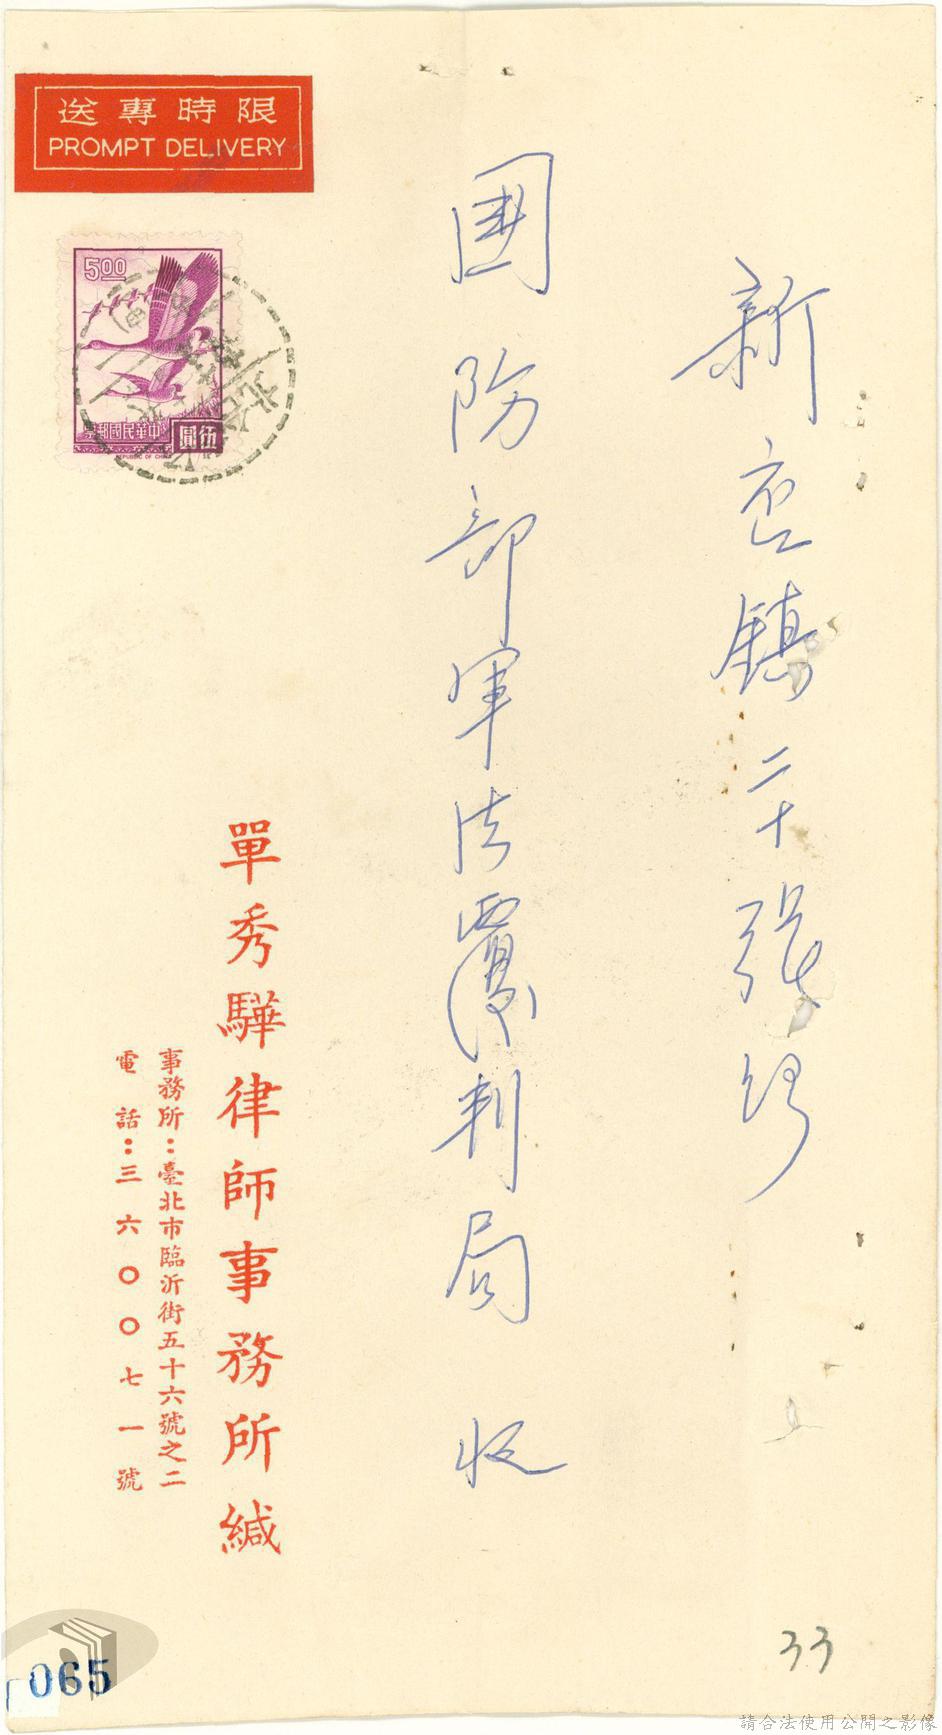 送專時限
PROMPT DELIVERY
5.00
票郵國民華中
圓伍
REPUBLIC OF CHINA
新店鎮二十張路
國防部軍法覆判局 收
單秀驊律師事務所緘
事務所：臺北市臨沂街五十六號之二
電話：三六〇〇七一號
33
065
請合法使用公開之影像